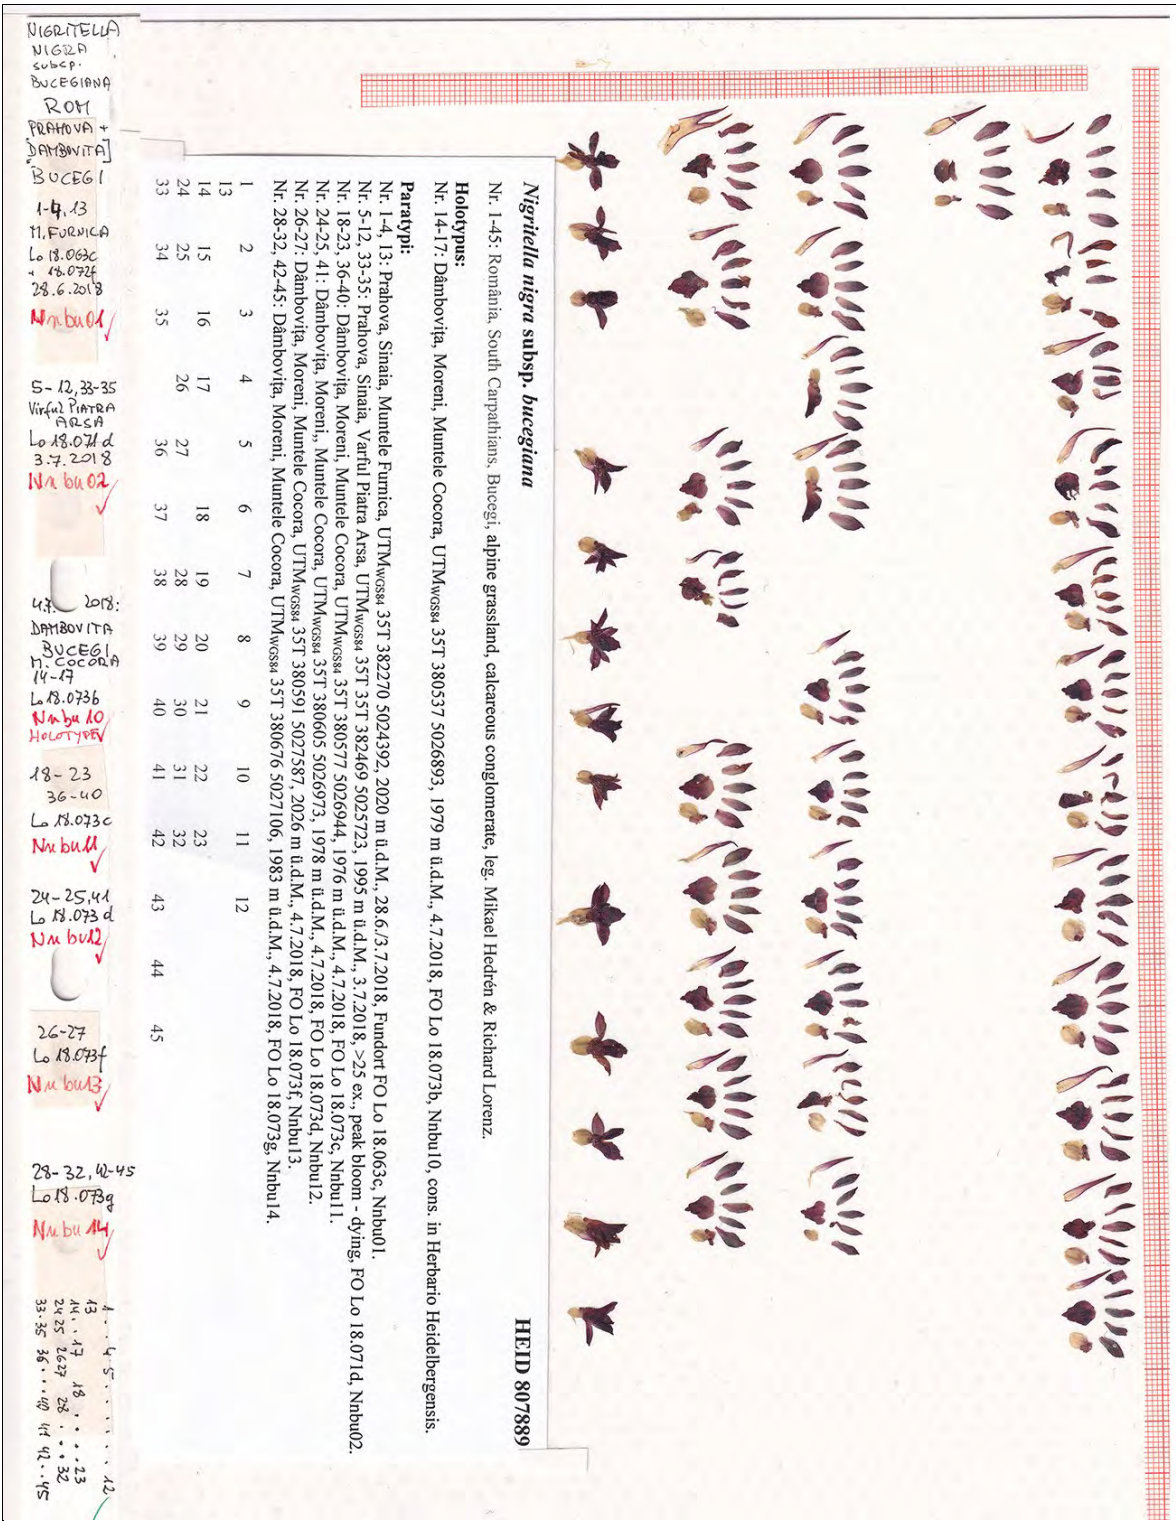 NIGRITELLA
NIGRA
subsp.
BUCEGIANA
ROM
PRAHOVA +
[DAMBOVITA]
BUCEGI
1-4, 13
M. FURNICA
Lo 18.063c
+ 18.072f
28.6.2018
Nnbu01
5-12, 33-35
Virful PIATRA
ARSA
Lo 18.071d
3.7.2018
Nnbu02
4.7. 2018:
DAMBOVITA
BUCEGI
M. COCORA
14-17
Lo 18.073b
Nnbu10
HOLOTYPE
18-23
36-40
Lo 18.073c
Nnbu11
24-25, 41
Lo 18.073d
Nnbu12
26-27
Lo 18.073f
Nnbu13
28-32, 42-45
Lo 18.073g
Nnbu14
1 . . 4 5 . . . . . . 12
13
14 . . 17 18 . . . . 23
24 25 26 27 28 . . . 32
33.35 36 . . . 40 41 42 . . 45
Nigritella nigra subsp. bucegiana HEID 807889
Nr. 1-45: România, South Carpathians, Bucegi, alpine grassland, calcareous conglomerate, leg. Mikael Hedrén & Richard Lorenz.
Holotypus:
Nr. 14-17: Dâmbovița, Moreni, Muntele Cocora, UTMWGS84 35T 380537 5026893, 1979 m ü.d.M., 4.7.2018, FO Lo 18.073b, Nnbu10, cons. in Herbario Heidelbergensis.
Paratypi:
Nr. 1-4, 13: Prahova, Sinaia, Muntele Furnica, UTMWGS84 35T 382270 5024392, 2020 m ü.d.M., 28.6./3.7.2018, Fundort FO Lo 18.063c, Nnbu01.
Nr. 5-12, 33-35: Prahova, Sinaia, Varful Piatra Arsa, UTMWGS84 35T 35T 382469 5025723, 1995 m ü.d.M., 3.7.2018, >25 ex., peak bloom - dying, FO Lo 18.071d, Nnbu02.
Nr. 18-23, 36-40: Dâmbovița, Moreni, Muntele Cocora, UTMWGS84 35T 380577 5026944, 1976 m ü.d.M., 4.7.2018, FO Lo 18.073c, Nnbu11.
Nr. 24-25, 41: Dâmbovița, Moreni,, Muntele Cocora, UTMWGS84 35T 380605 5026973, 1978 m ü.d.M., 4.7.2018, FO Lo 18.073d, Nnbu12.
Nr. 26-27: Dâmbovița, Moreni, Muntele Cocora, UTMWGS84 35T 380591 5027587, 2026 m ü.d.M., 4.7.2018, FO Lo 18.073f, Nnbu13.
Nr. 28-32, 42-45: Dâmbovița, Moreni, Muntele Cocora, UTMWGS84 35T 380676 5027106, 1983 m ü.d.M., 4.7.2018, FO Lo 18.073g, Nnbu14.
1 2 3 4 5 6 7 8 9 10 11 12
13
14 15 16 17 18 19 20 21 22 23
24 25 26 27 28 29 30 31 32
33 34 35 36 37 38 39 40 41 42 43 44 45